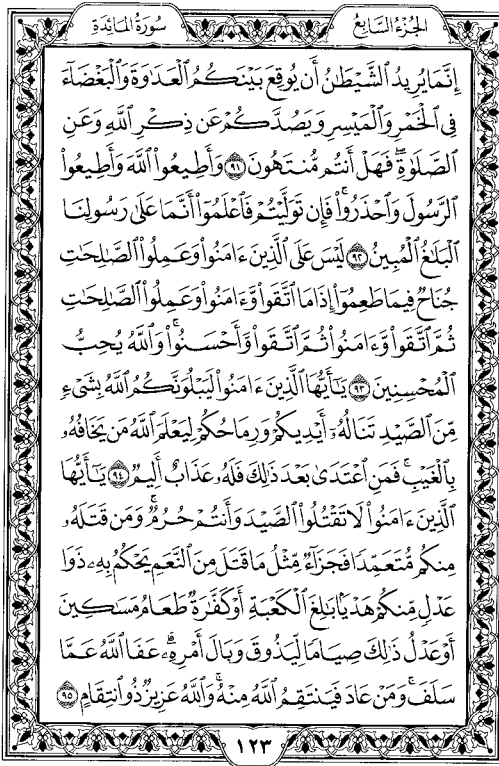 الجزء السابع
سورة المائدة
إِنَّمَا يُرِيدُ ٱلشَّيْطَٰنُ أَن يُوقِعَ بَيْنَكُمُ ٱلْعَدَٰوَةَ وَٱلْبَغْضَآءَ
فِى ٱلْخَمْرِ وَٱلْمَيْسِرِ وَيَصُدَّكُمْ عَن ذِكْرِ ٱللَّهِ وَعَنِ
ٱلصَّلَوٰةِ ۖ فَهَلْ أَنتُم مُّنتَهُونَ ٩١ وَأَطِيعُوا۟ ٱللَّهَ وَأَطِيعُوا۟
ٱلرَّسُولَ وَٱحْذَرُوا۟ ۚ فَإِن تَوَلَّيْتُمْ فَٱعْلَمُوٓا۟ أَنَّمَا عَلَىٰ رَسُولِنَا
ٱلْبَلَٰغُ ٱلْمُبِينُ ٩٢ لَيْسَ عَلَى ٱلَّذِينَ ءَامَنُوا۟ وَعَمِلُوا۟ ٱلصَّٰلِحَٰتِ
جُنَاحٌ فِيمَا طَعِمُوٓا۟ إِذَا مَا ٱتَّقَوا۟ وَّءَامَنُوا۟ وَعَمِلُوا۟ ٱلصَّٰلِحَٰتِ
ثُمَّ ٱتَّقَوا۟ وَّءَامَنُوا۟ ثُمَّ ٱتَّقَوا۟ وَّأَحْسَنُوا۟ ۗ وَٱللَّهُ يُحِبُّ
ٱلْمُحْسِنِينَ ٩٣ يَٰٓأَيُّهَا ٱلَّذِينَ ءَامَنُوا۟ لَيَبْلُوَنَّكُمُ ٱللَّهُ بِشَىْءٍ
مِّنَ ٱلصَّيْدِ تَنَالُهُۥٓ أَيْدِيكُمْ وَرِمَاحُكُمْ لِيَعْلَمَ ٱللَّهُ مَن يَخَافُهُۥ
بِٱلْغَيْبِ ۚ فَمَنِ ٱعْتَدَىٰ بَعْدَ ذَٰلِكَ فَلَهُۥ عَذَابٌ أَلِيمٌ ٩٤ يَٰٓأَيُّهَا
ٱلَّذِينَ ءَامَنُوا۟ لَا تَقْتُلُوا۟ ٱلصَّيْدَ وَأَنتُمْ حُرُمٌ ۚ وَمَن قَتَلَهُۥ
مِنكُم مُّتَعَمِّدًا فَجَزَآءٌ مِّثْلُ مَا قَتَلَ مِنَ ٱلنَّعَمِ يَحْكُمُ بِهِۦ ذَوَا
عَدْلٍ مِّنكُمْ هَدْيًۢا بَٰلِغَ ٱلْكَعْبَةِ أَوْ كَفَّٰرَةٌ طَعَامُ مَسَٰكِينَ
أَوْ عَدْلُ ذَٰلِكَ صِيَامًا لِّيَذُوقَ وَبَالَ أَمْرِهِۦ ۗ عَفَا ٱللَّهُ عَمَّا
سَلَفَ ۚ وَمَنْ عَادَ فَيَنتَقِمُ ٱللَّهُ مِنْهُ ۗ وَٱللَّهُ عَزِيزٌ ذُو ٱنتِقَامٍ ٩٥
١٢٣